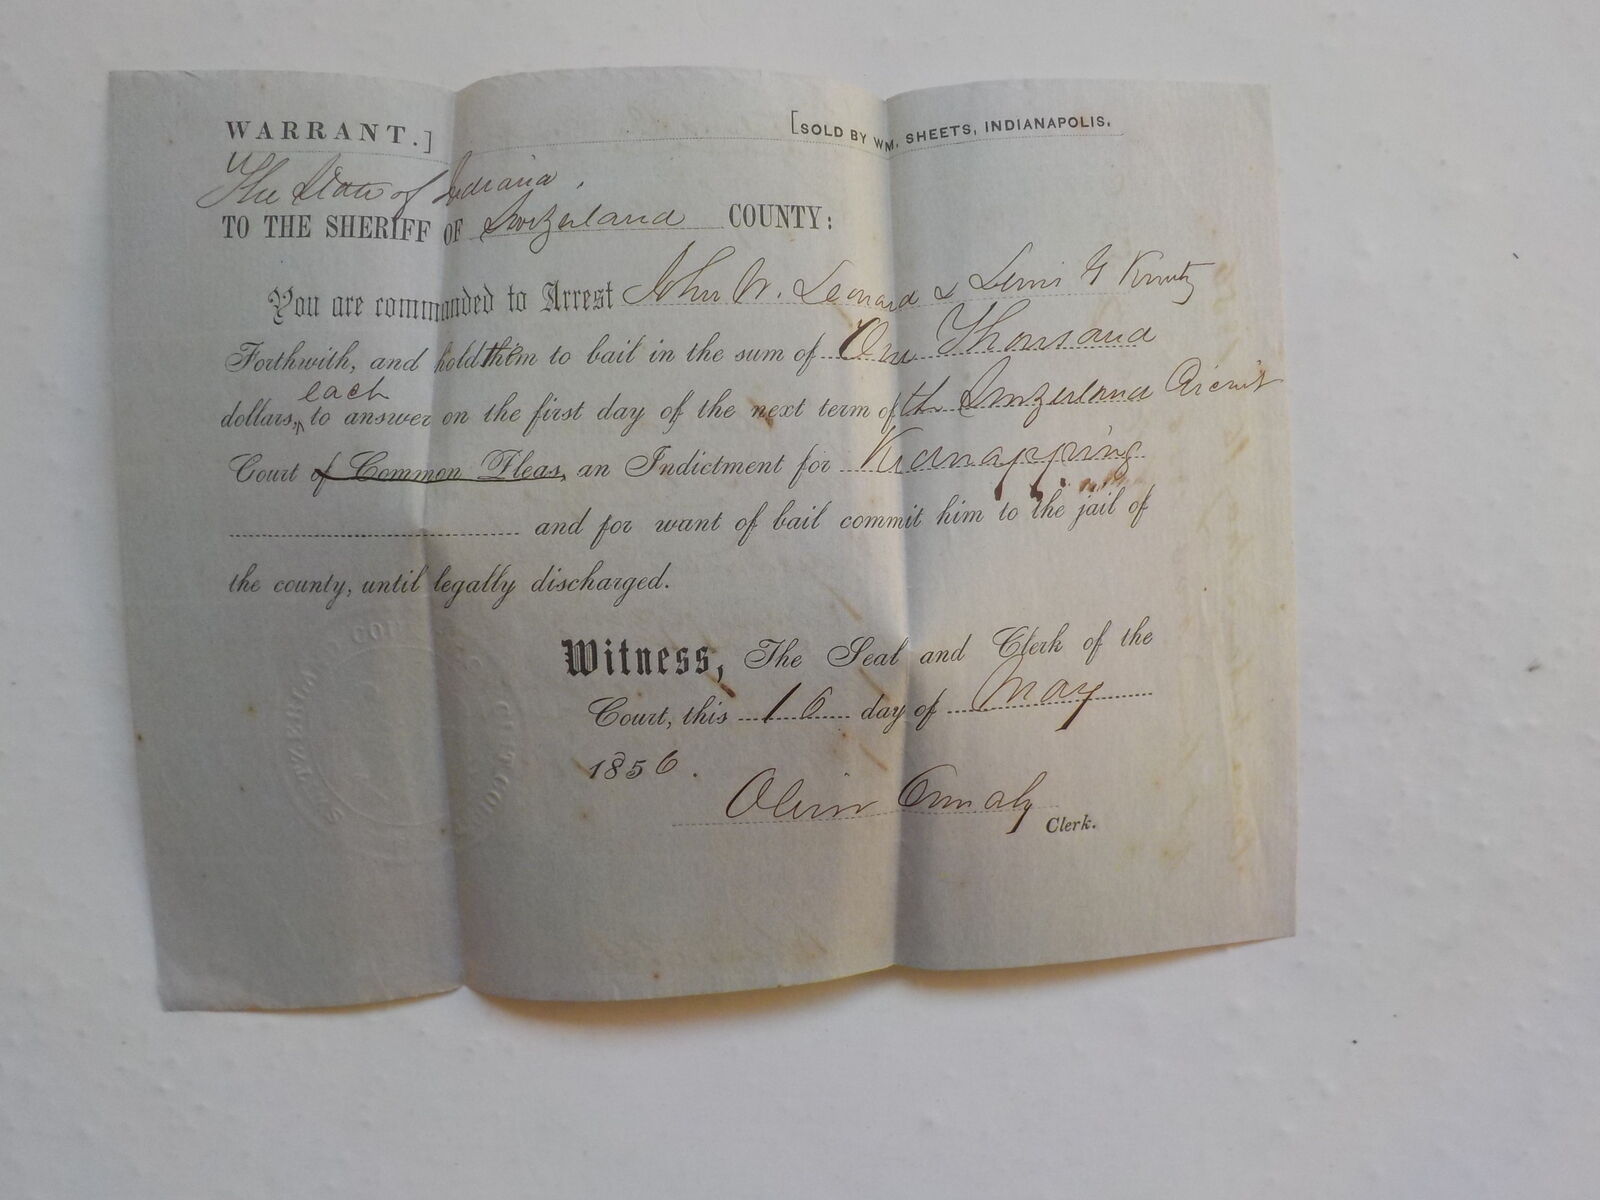 WARRANT.] [SOLD BY WM. SHEETS, INDIANAPOLIS.
The State of Indiana,
TO THE SHERIFF OF Switzerland COUNTY:
You are commanded to Arrest John W. Leonard & Lewis G
Forthwith, and hold them to bail in the sum of One Thousand
each
dollars, to answer on the first day of the next term of the Switzerland Circuit
Court of Common Pleas, an Indictment for Kidnapping
and for want of bail commit him to the jail of
the county, until legally discharged.
Witness, The Seal and Clerk of the
Court, this 16 day of May
1856.
Clerk.